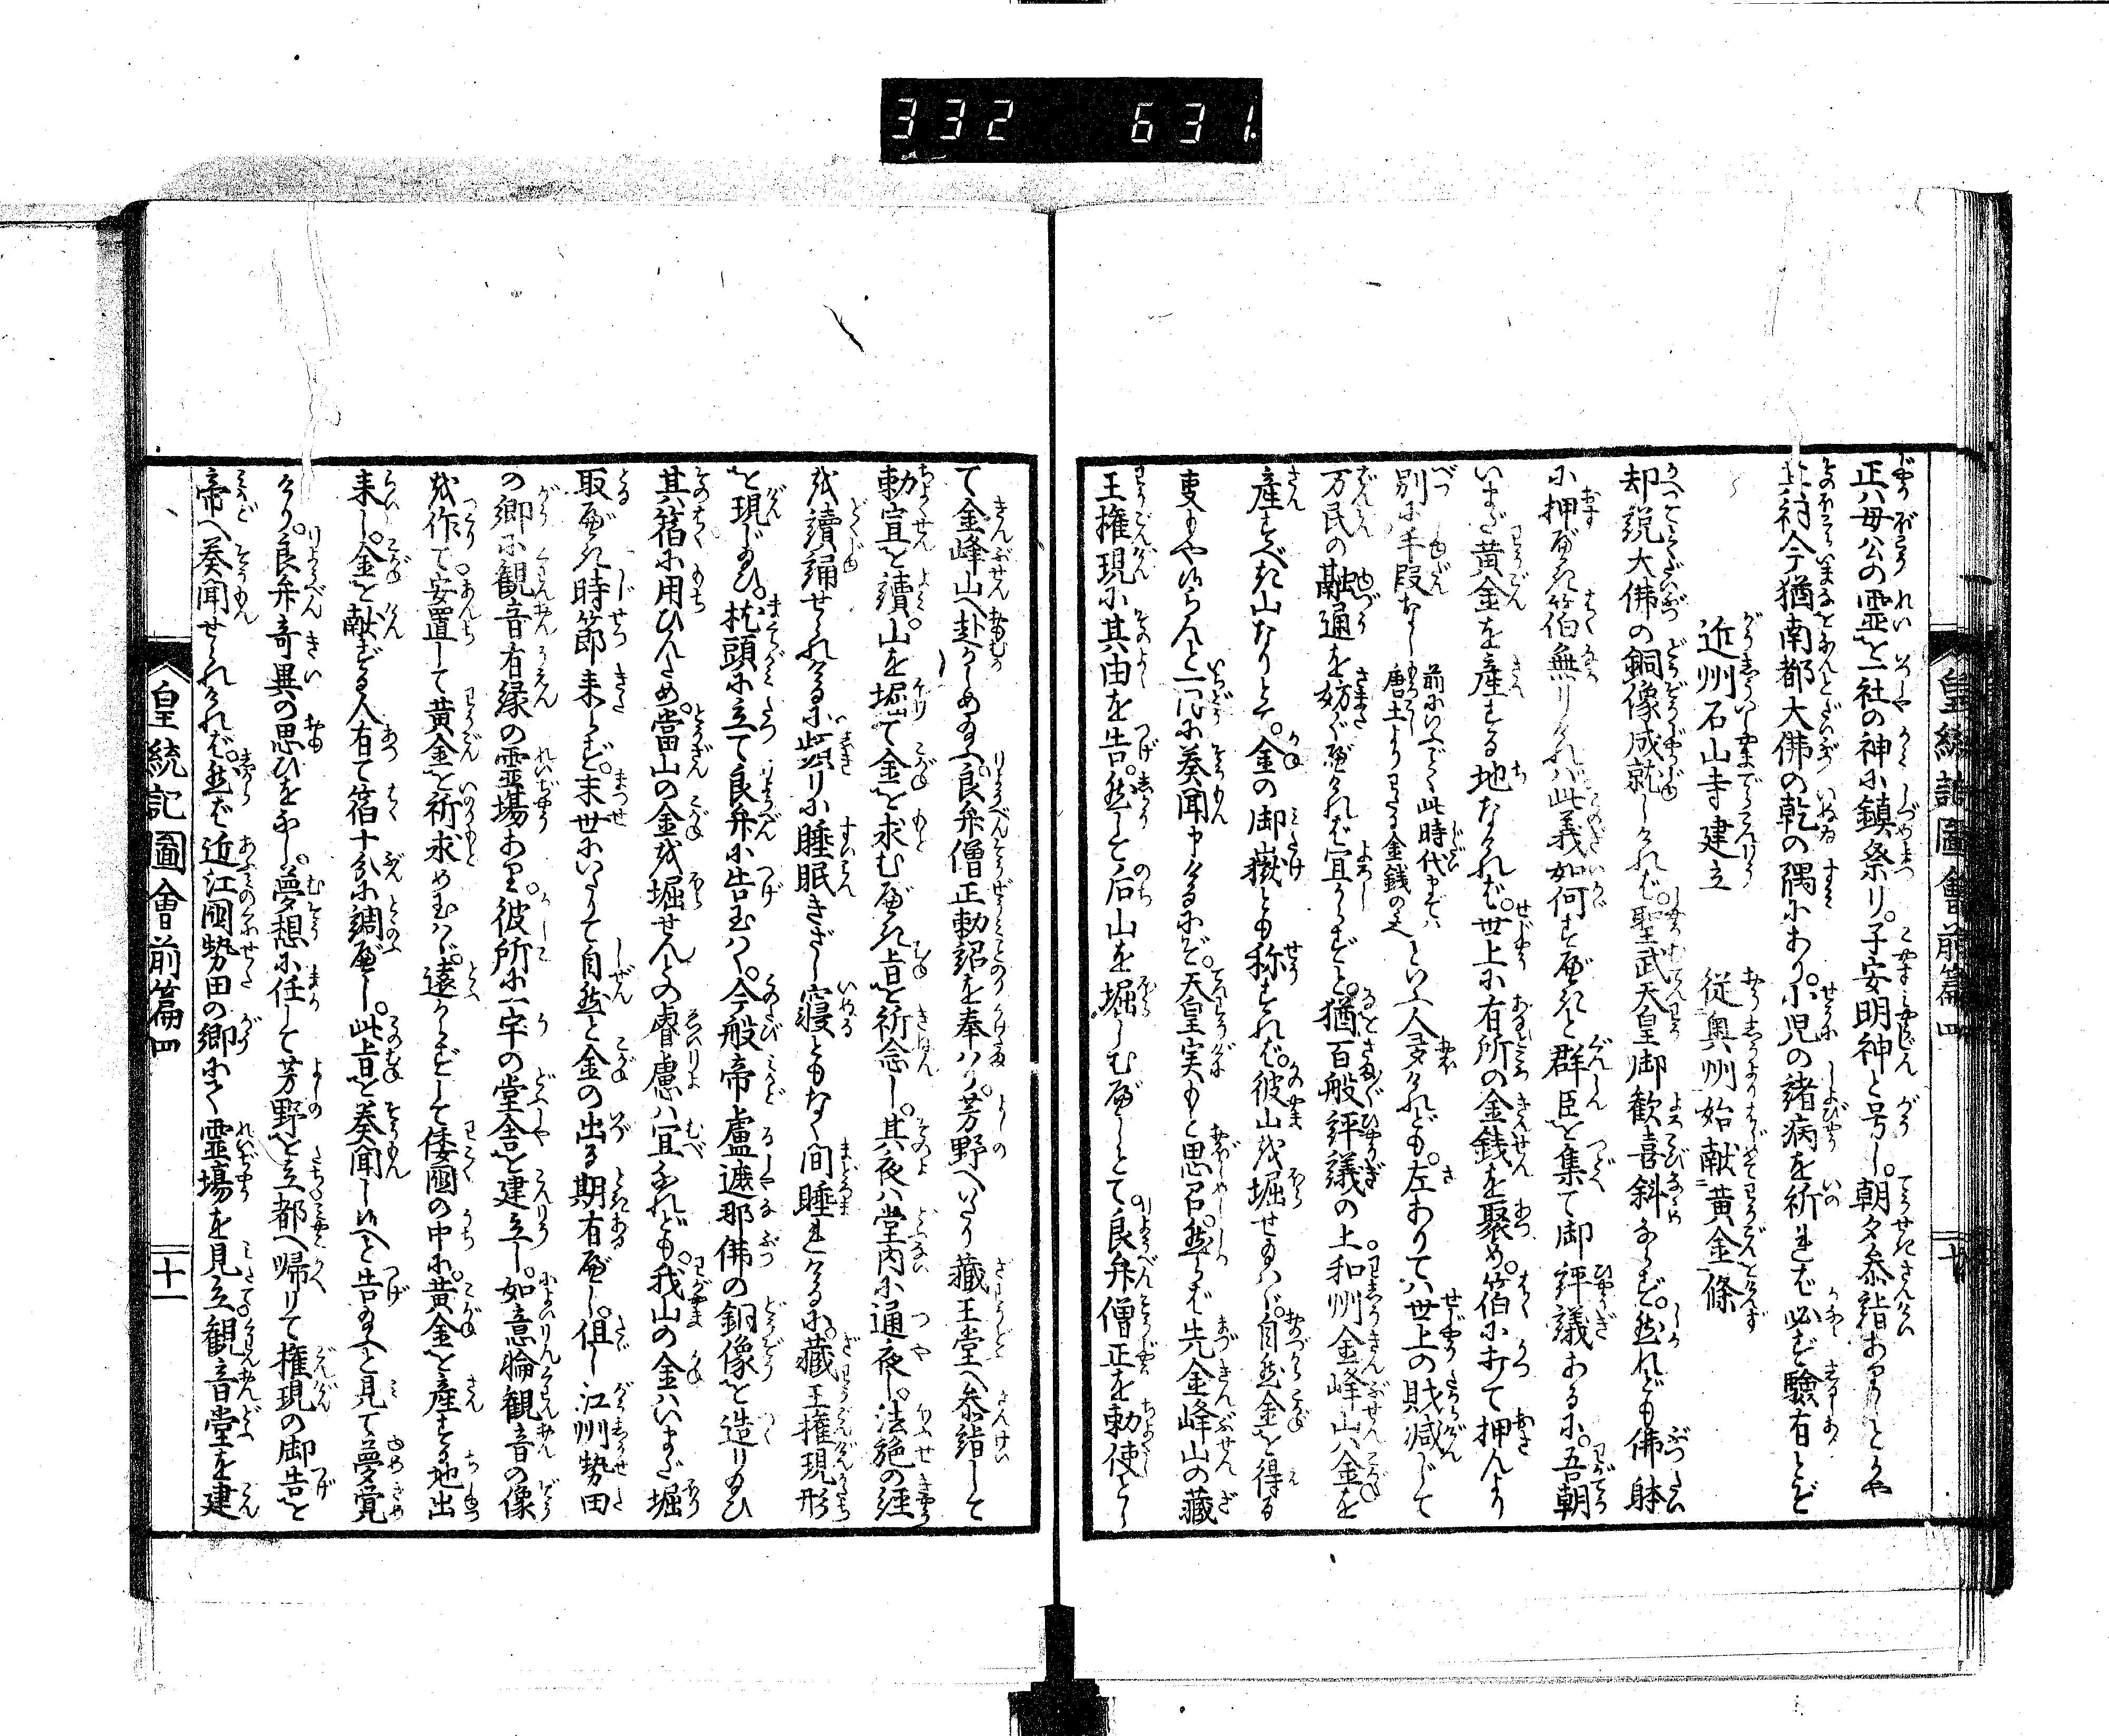 332 631.
皇統記圖會前篇四
十
正八母公の霊を一社の神に鎮祭り。子安明神と号し。朝夕参詣ありとかや
其祠今猶南都大佛の乾の隅にあり。小児の諸病を祈れば必ず験有とぞ
近州石山寺建立　従奥州始献黄金條
却説大佛の銅像成就しければ。聖武天皇御歓喜斜ならず。然れども佛躰
に押べき箔無りければ此義如何すべきと群臣を集て御評議あるに。吾朝
いまだ黄金を産する地なければ。世上に有所の金銭を聚め。箔に打て押んより
別に手段なし
前にいふごく此時代までハ
唐土よりわたる金銭の之
といふ人多けれども。左ありてハ世上の財減じて
万民の融通を妨ぐべければ宜からずと。猶百般評議の上和州金峰山ハ金を
産すべき山なりとて。金の御嶽とも称すれば。彼山を堀せ給ハヾ。自然金を得る
事もや候らんと一同に奏聞申けるにぞ。天皇実もと思召。然らば先金峰山の藏
王権現に其由を告。然して石山を堀しむべしとて良弁僧正を勅使とし
て金峰山へ赴かしめ給ふ。良弁僧正勅詔を奉ハり。芳野へいたり藏王堂へ参詣して
勅宣を讀。山を堀て金を求む可き旨を祈念し。其夜ハ堂内に通夜し。法施の経
を讀誦せられけるに頻りに睡眠きざし寝ともなく間睡れけるに。藏王権現形
を現じ給ひ。枕頭に立て良弁に告玉はく。今般帝盧遮那佛の銅像を造り給ひ
其箔に用ひんため。當山の金を堀せんとの睿慮ハ宜なれども。我山の金ハいまだ堀
取べき時節来らず。末世にいたりて自然と金の出る期有べし。但し江州勢田
の郷に観音有縁の霊場あり。彼所に一宇の堂舎を建立し。如意輪観音の像
を作て。安置して黄金を祈求め玉ハヾ。遠からずして倭國の中に。黄金を産する地出
来し。金を献ずる人有て箔十分に調べし。此旨を奏聞し候へと告給ふと見て夢覚
けり。良弁奇異の思ひをなし。夢想に任して芳野を立都へ帰りて権現の御告を
帝へ奏聞せられければ。然ば近江國勢田の郷にて霊場を見立観音堂を建
皇統記圖會前篇四
十一